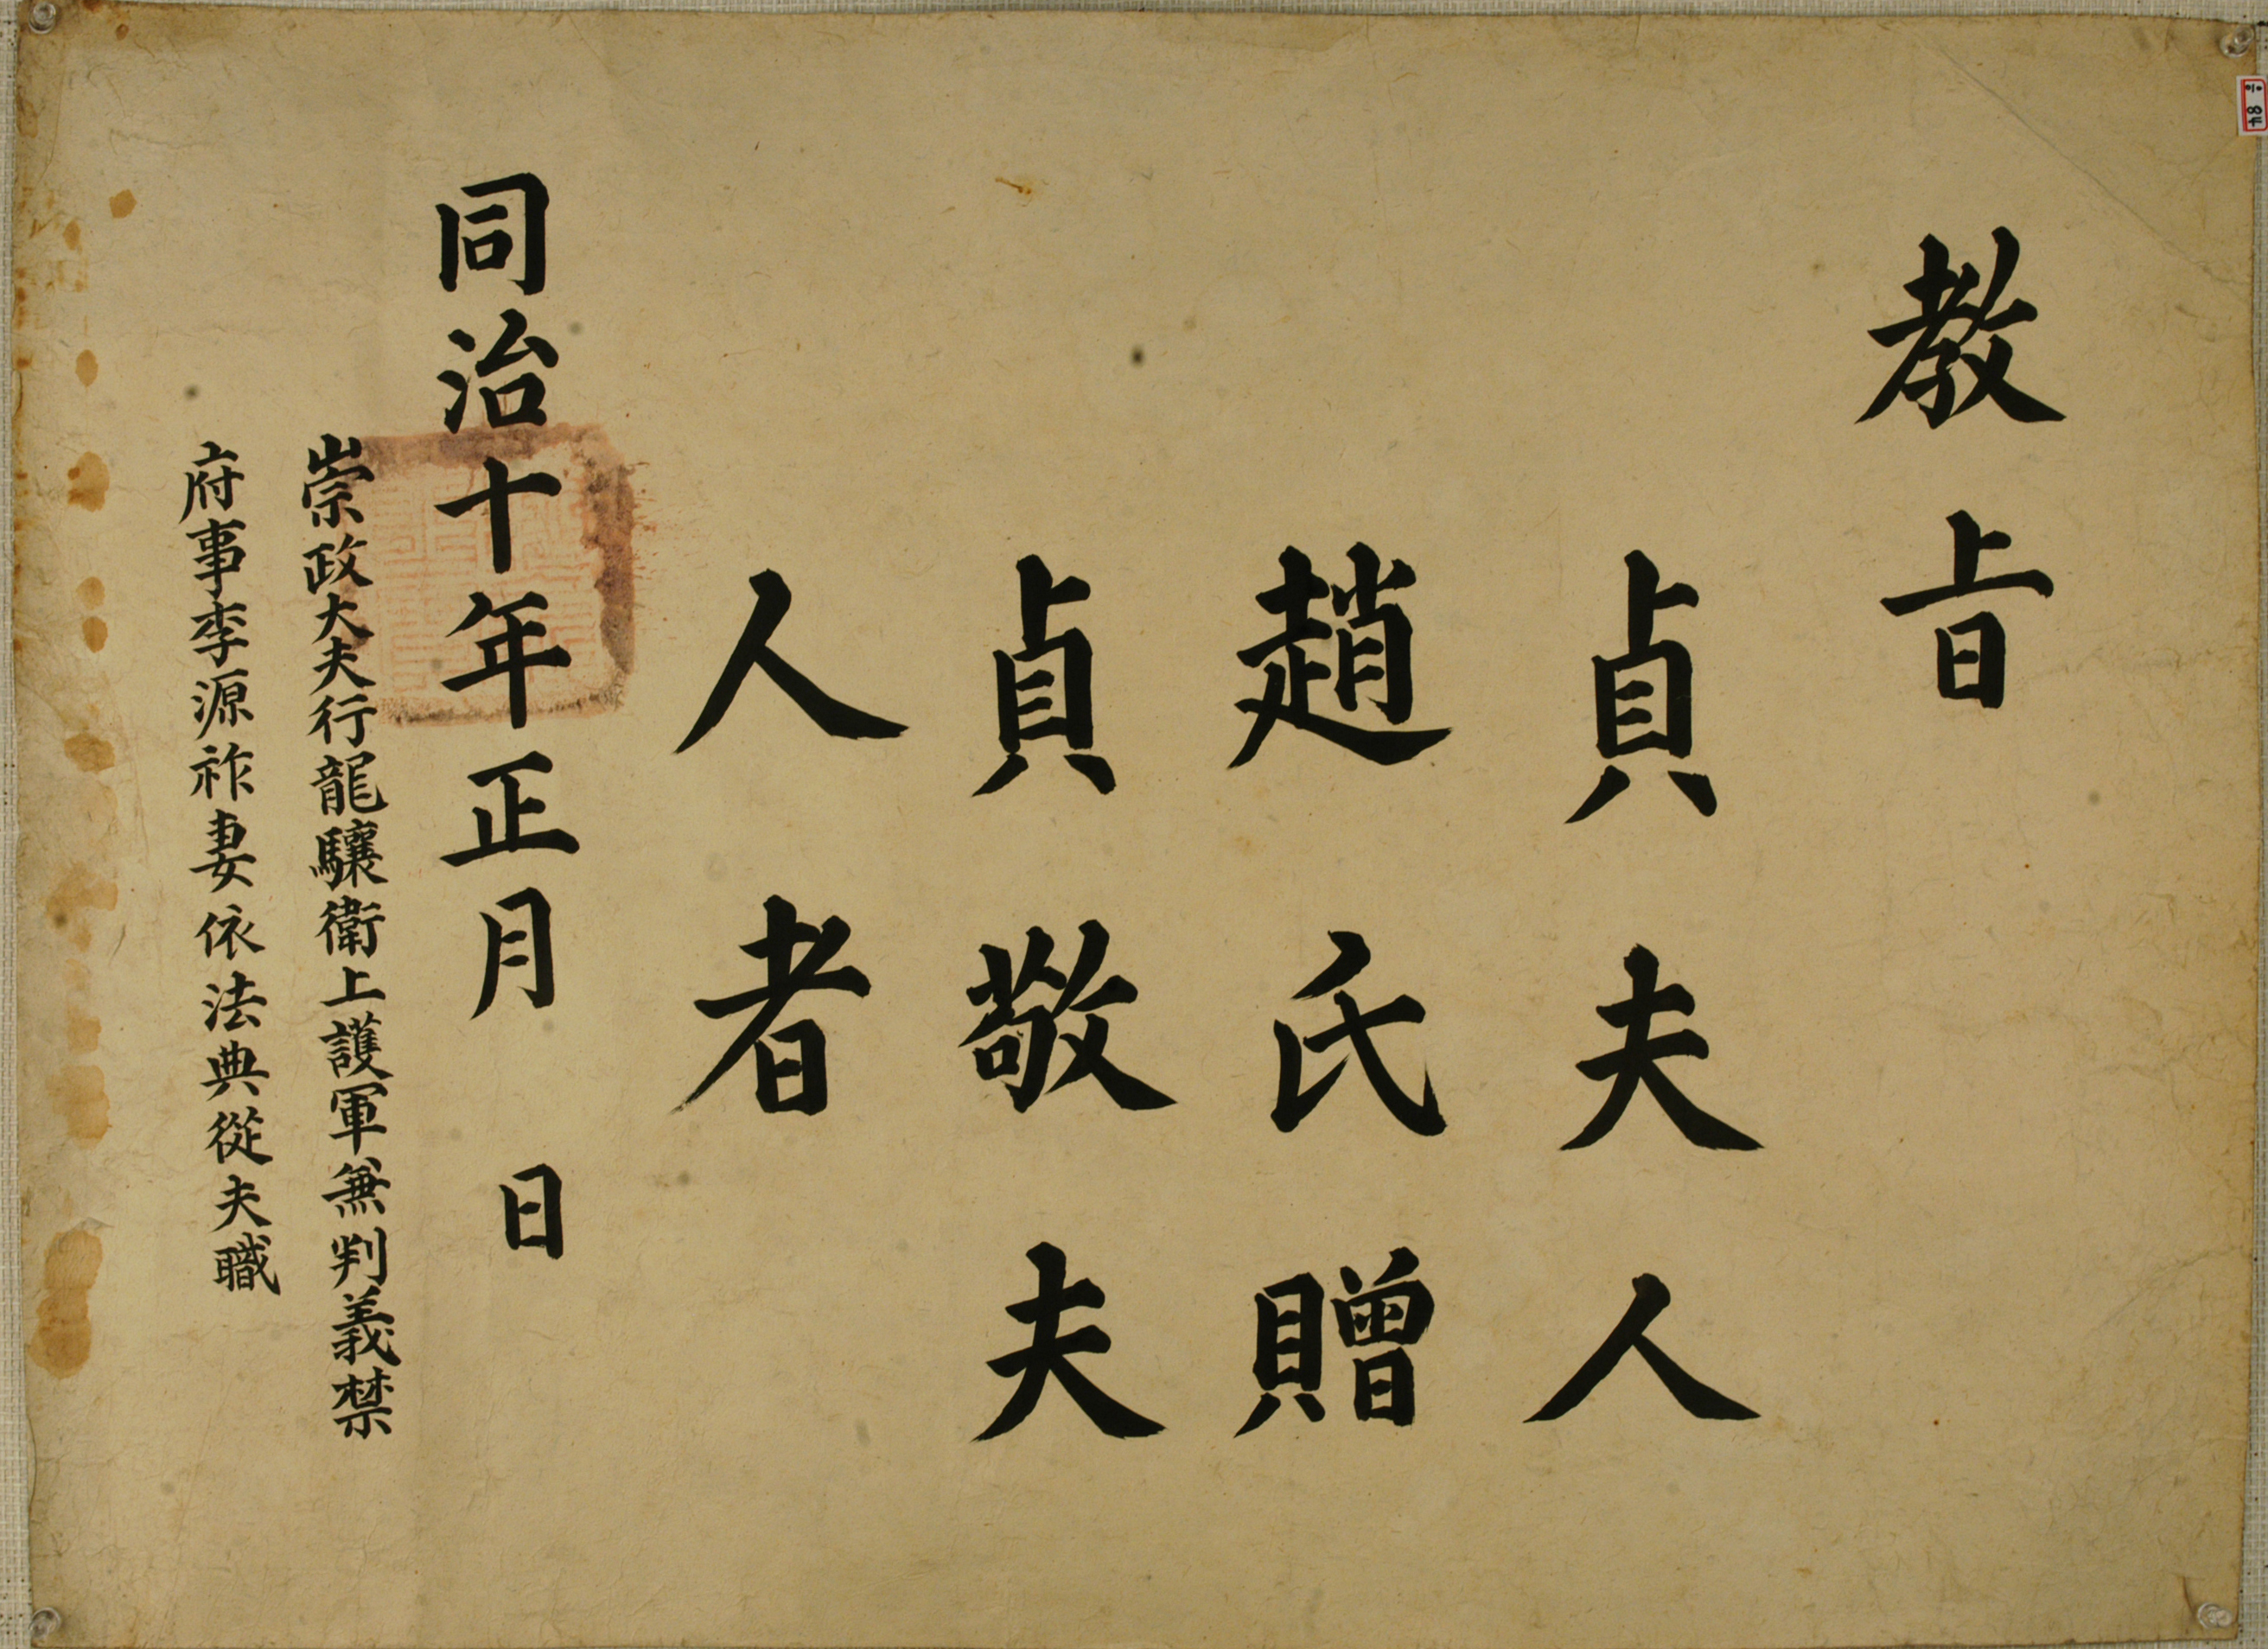 教旨
貞夫人
趙氏贈
貞敬夫
人者
同治十年正月 日
崇政大夫行龍驤衛上護軍兼判義禁
府事李源祚妻依法典從夫職